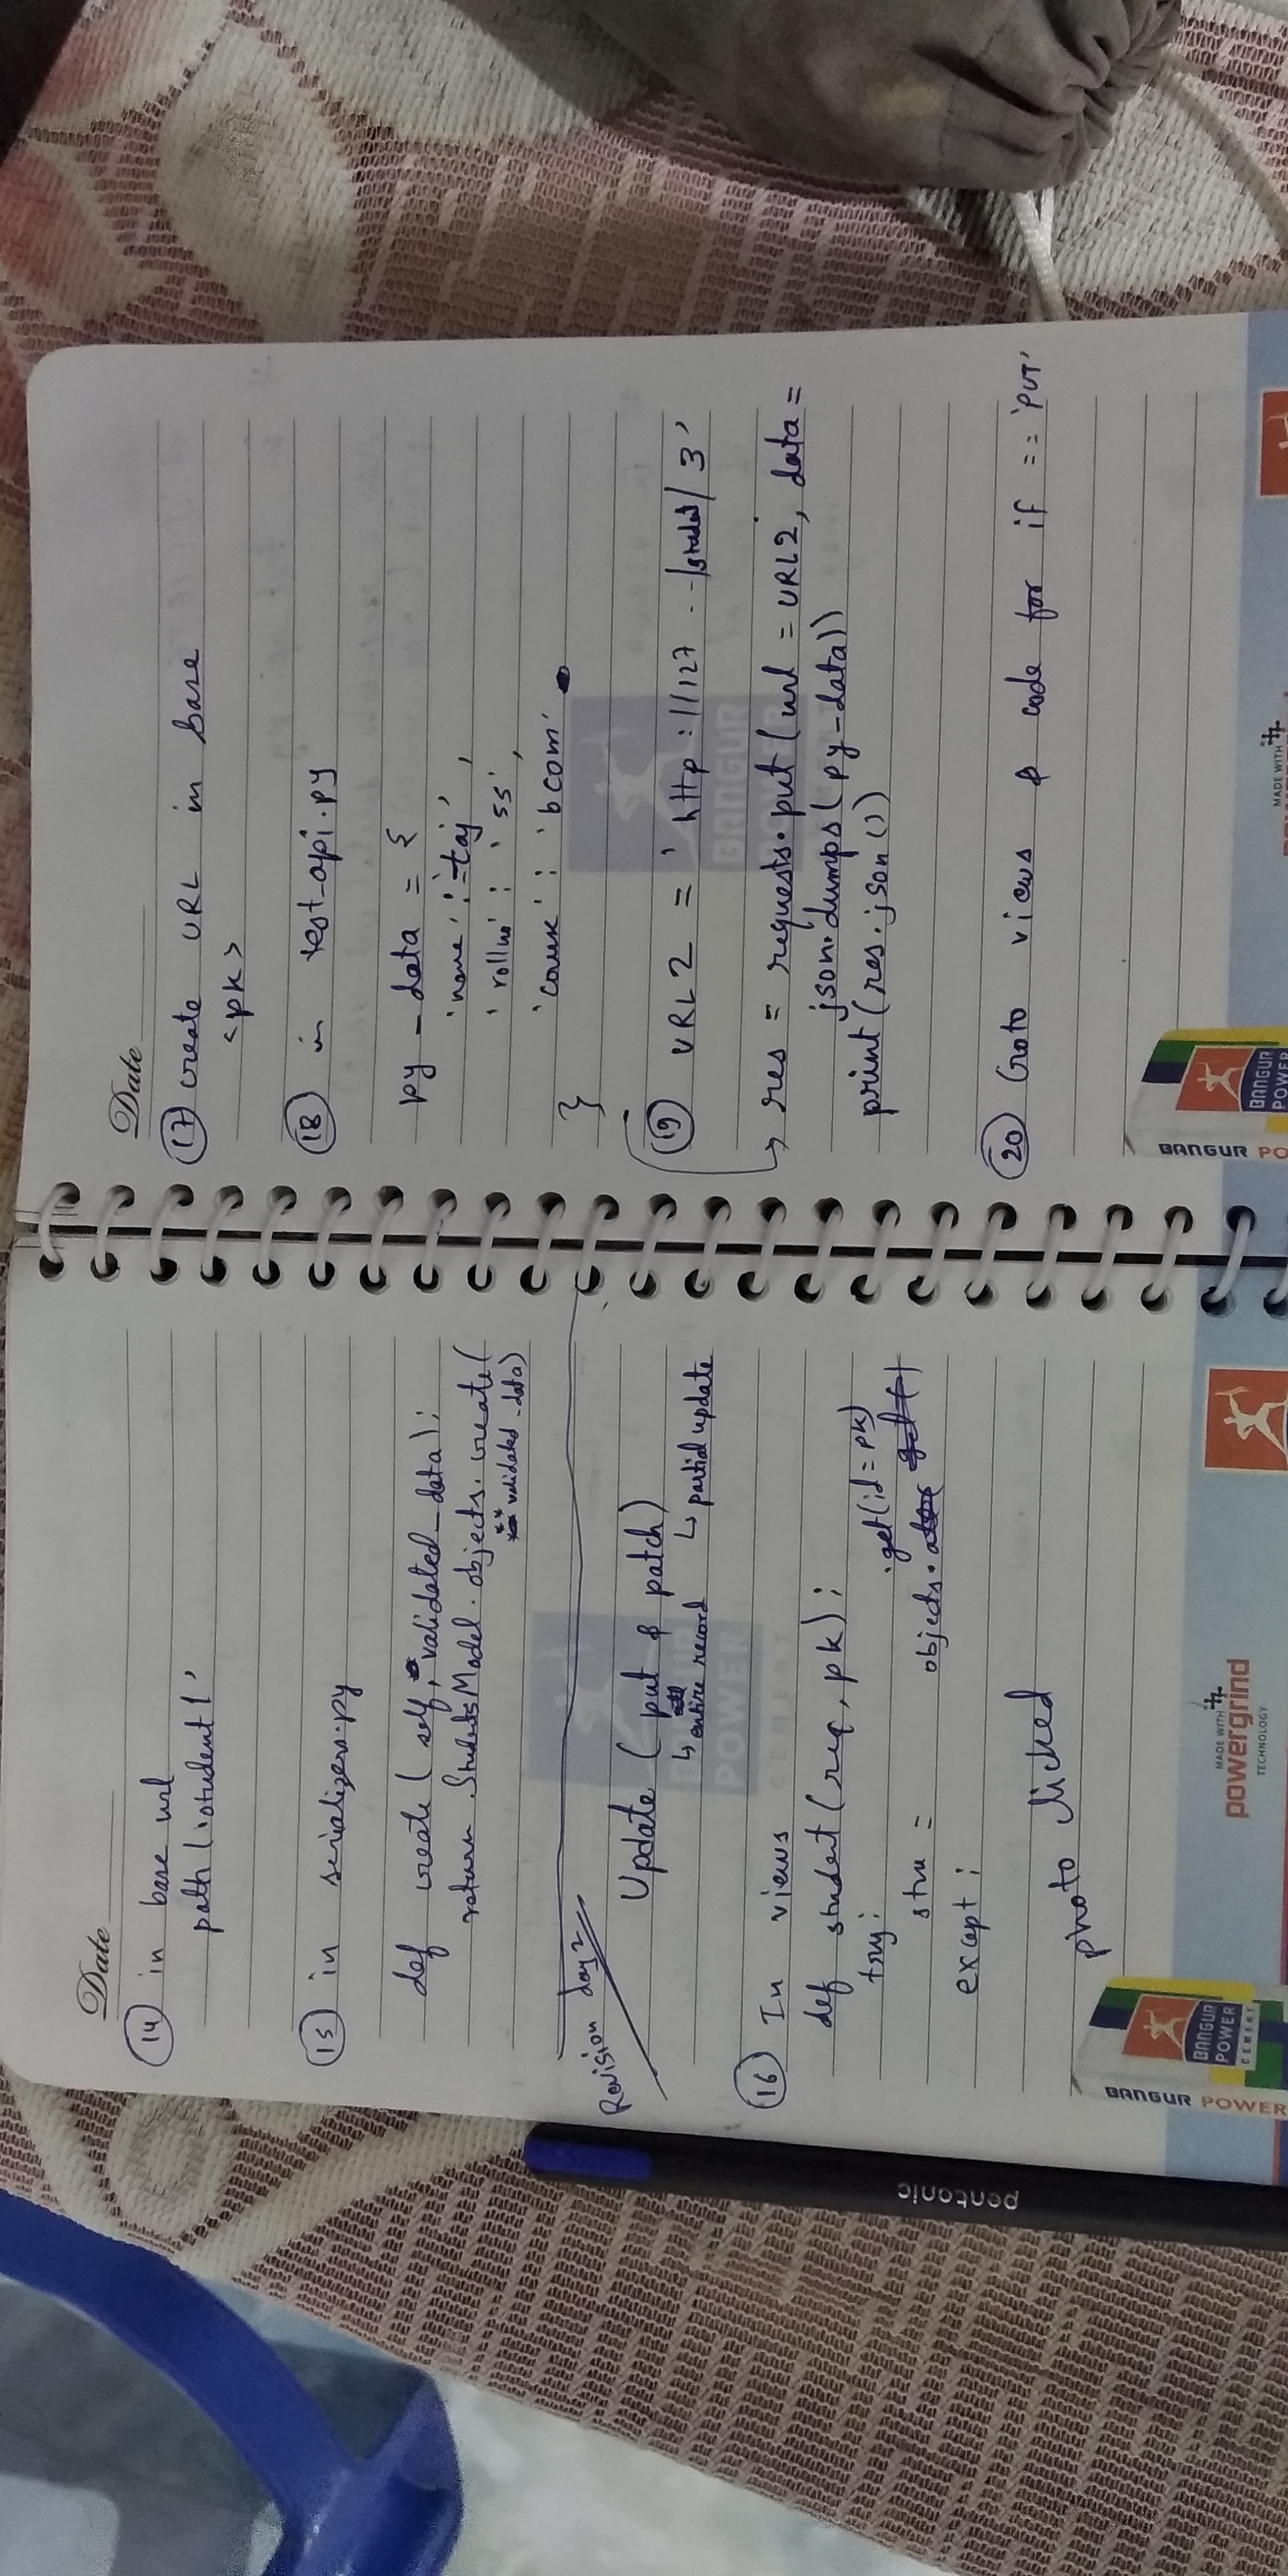 Date
14 in base url
path ('student/'
15 in serializers.py
def create ( self, validated_data):
return StudentsModel.objects.create(
** validated_data)
Revision day 2
Update ( put & patch)
↳ entire record ↳ partial update
16 In views
def student (req, pk):
try:
.get(id=pk)
stu = objects.
except:
photo clicked
BANGUR POWER
BANGUR
POWER
CEMENT
BANGUR
POWER
CEMENT
MADE WITH
powergrind
TECHNOLOGY
pentonic
Date
17 create URL in base
<pk>
18 in test_api.py
py_data = {
'name' : 'taj' ,
'rollno' : '55',
'course' : 'bcom'
}
19 URL2 = 'http://127 . - /student/3'
→ res = requests.put (url = URL2, data =
json.dumps(py_data))
print (res.json())
20 Goto views & code for if == 'PUT'
BANGUR
BANGUR PO
BANGUR
POWER
MADE WITH